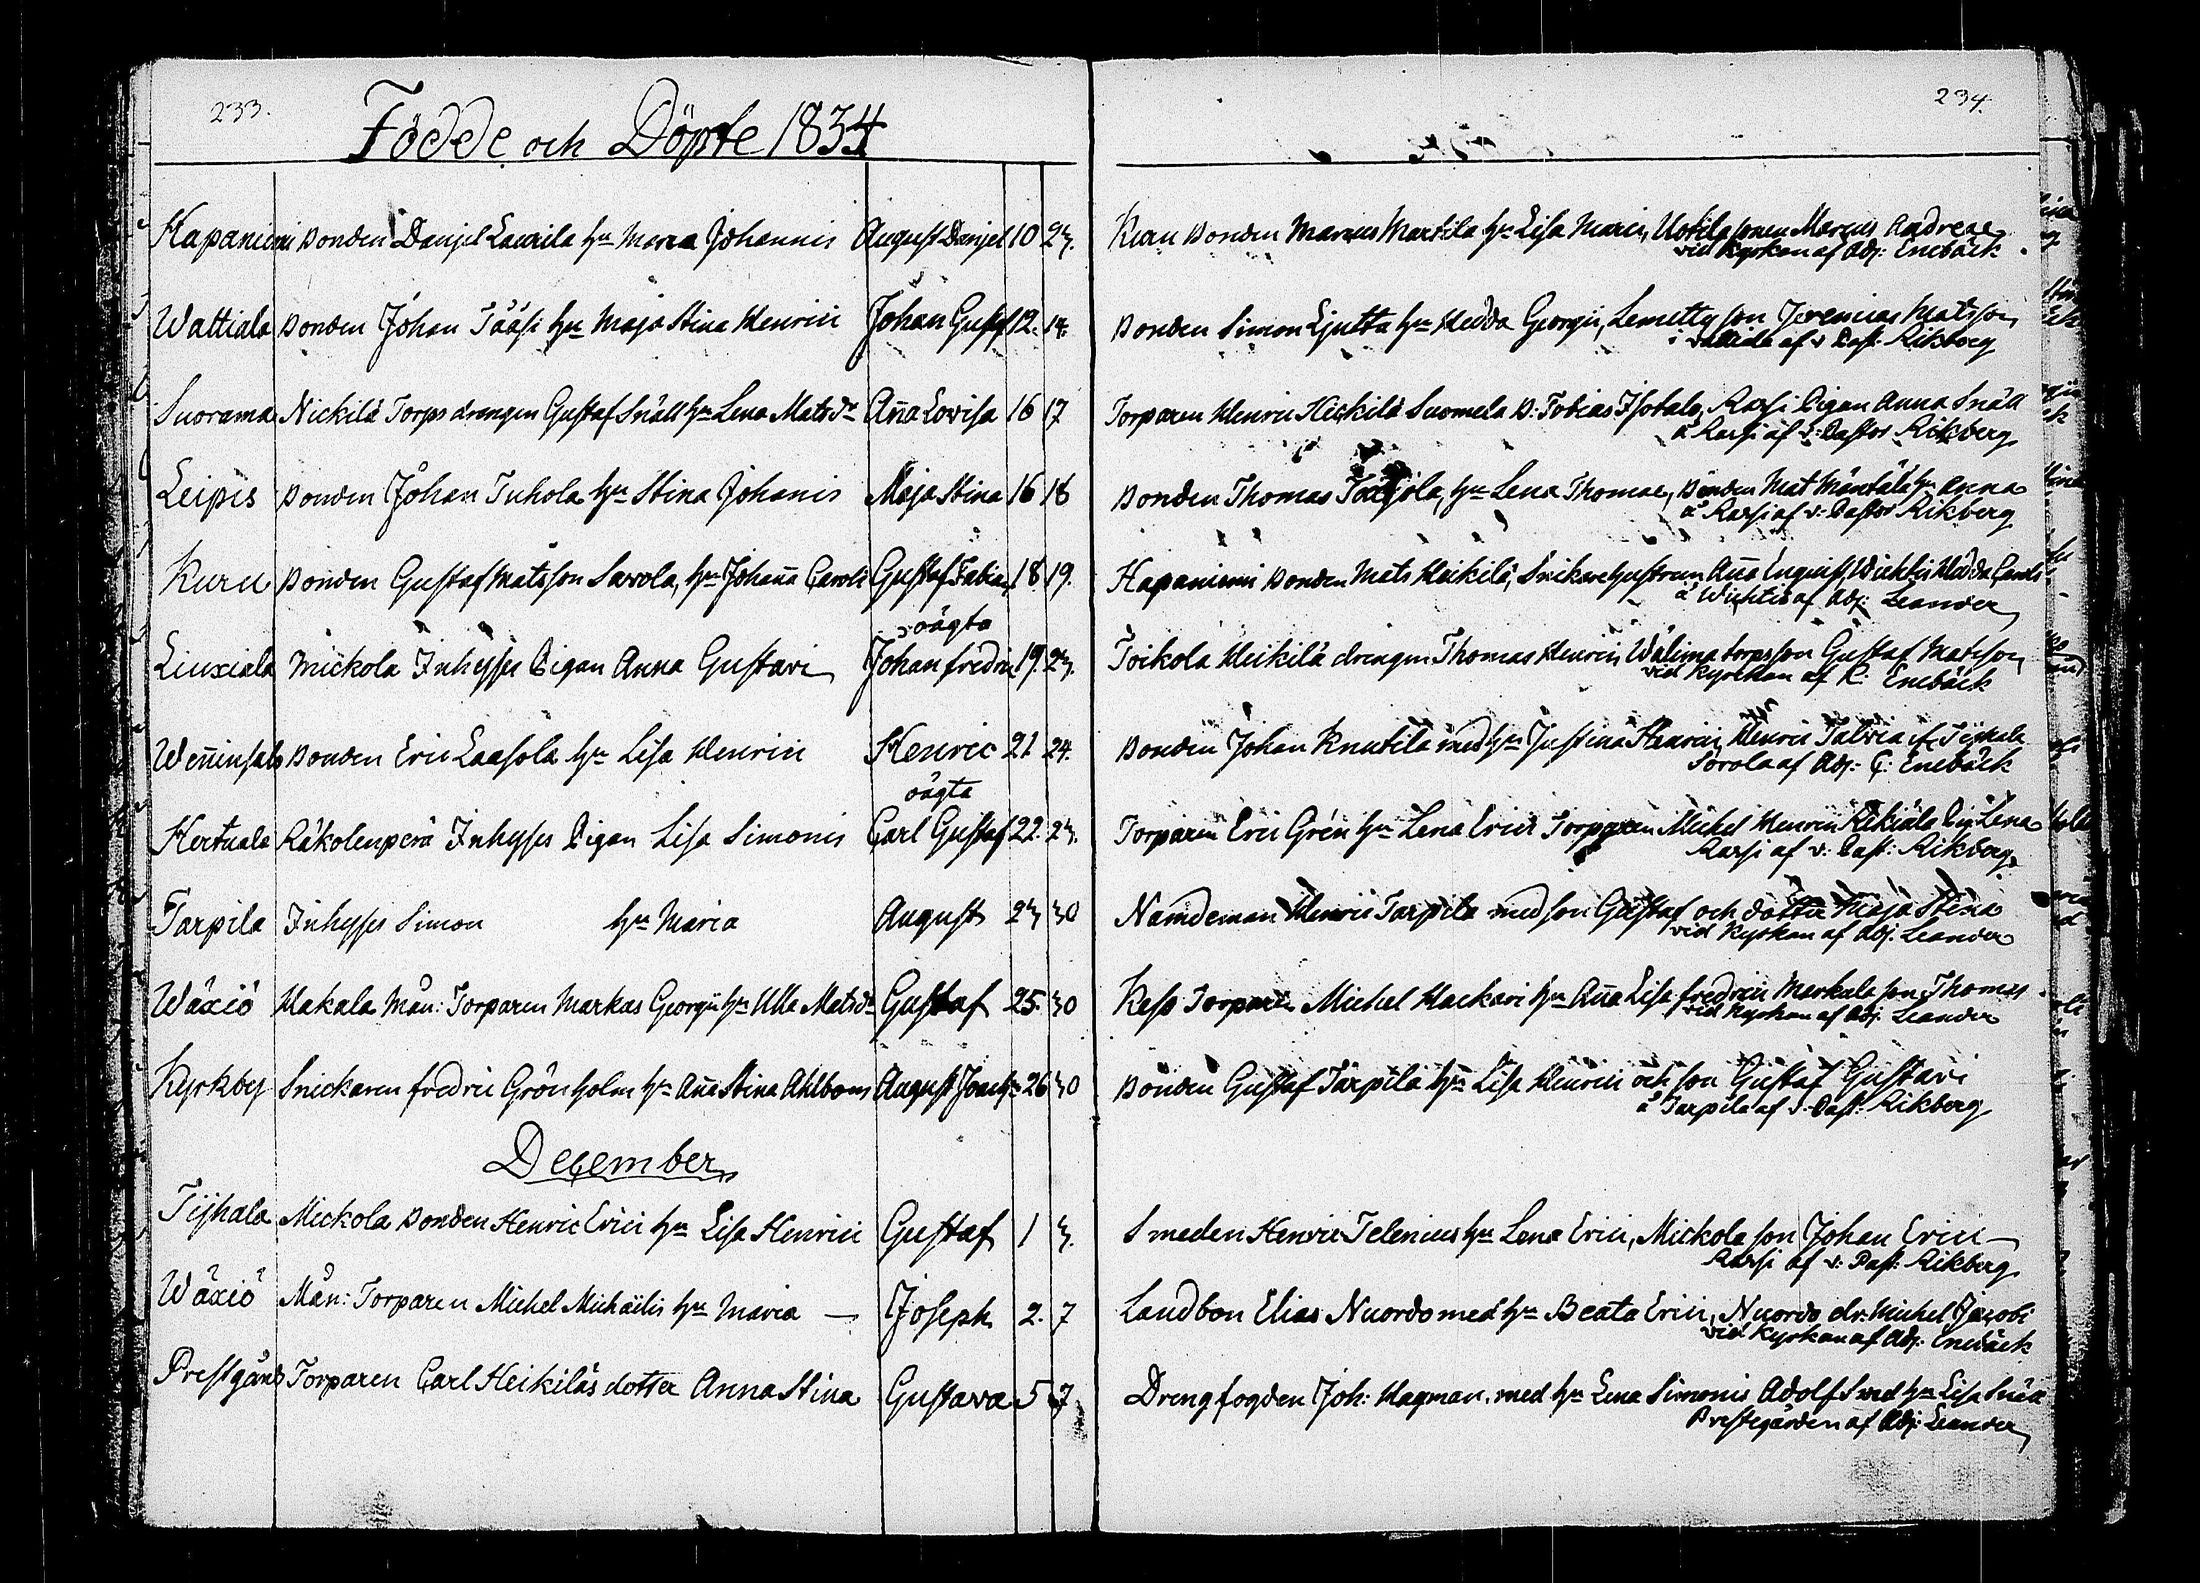 233.
234.
Födde och Döpte 1834
Hapaniemi Bonden Danjel Laurila hu Maria Johannis August Danjel 10 23. Kuru Bonden Marcus Martila hu Lisa Marci, Uotila sonen Marcus Andreae
vid kyrkan af Adj: Enebäck
Wattiala Bonden Johan Jääsi hu Maja Stina Henrici Johan Gustaf 12. 14. Bonden Simon Ljutta hu Hedda Georgii, Lemetty son Jeremias Matsson
i af v Past: Rikberg
Suorama Nickilä Torps drengen Gustaf Snäll hu Lena Matsdr Aña Lovisa 16 17 Torparen Henric Heickilä Suomela B: Tobias Isotalo, Rarsi Pigan Anna Snäll
å Rarsi af v: Pastor Rikberg
Leipis Bonden Johan Tuhola hu Stina Johanis Maja Stina 16 18 Bonden Thomas hu Lena Thomae, Bonden Mat Mäntälä hu Anna
å Rarsi af v: Pastor Rikberg
Kuru Bonden Gustaf Matsson Savola, hu Johaña Caroli Gustaf Fabian 18 19. Hapaniemi Bonden Mats Heikilä, Snickarehustrun Aña Enqvist, Wichtis Hedda
å Wichtis af Adj: Leander
oägta
Liuxiala Mickola Inhyses Pigan Anna Gustavi Johan Fredric 19. 23. Toikola Heikilä drengen Thomas Henrici Wälima torpsson Gustaf Matsson
vid Kyrkan af K: Enebäck
Weñinsalo Bonden Eric Laasola hu Lisa Henrici Henric 21 24. Bonden Johan Knutila med hu Justina Henrici, Henric Talvia
Sorola af Adj: C: Enebäck
oägta
Hertuala Räkolenperä Inhyses Pigan Lisa Simonis Carl Gustaf 22. 23. Torparen Eric Grén hu Lena Erici Torparen Michel Henrici Kikiälä Pig Lena
Rarsi af v: Past: Rikberg
Tarpila Inhyses Simon hu Maria August 23 30 Nämdeman Henric Tarpila med son Gustaf och dotter Maja Stina
vid Kyrkan af Adj. Leander
Wäxiö Hakala Mån: Torparen Markus Georgii hu Ulla Matsdr Gustaf 25. 30 Keso Torparen Michel Hackari hu Aña Lisa Fredrici Markala son Thomas
vid Kyrkan af Adj. Leander
Kyrkby Snickaren Fredric Grönholm hu Aña Stina Ahlbom August Joach: 26 30 Bonden Gustaf Tarpila hu Lisa Henrici och son Gustaf Gustavi
å Tarpila af v: Past: Rikberg
December
Tijhala Mickola Bonden Henric Erici hu Lisa Henrici Gustaf 1 3. Smeden Henric Telenius hu Lena Erici, Mickola son Johan Erici
Rarsi af v: Past: Rikberg
Wäxiö Mån: Torparen Michel Michäilis hu Maria — Joseph 2. 7 Landbon Elias Nuordo med hu Beata Erici, Nuordo dr. Michel Jacobi
vid Kyrkan af Adj: Enebäck
Prestgård Torparen Carl Heikiläs dotter Anna Stina Gustava 5 7 Drengfogden Joh: Hagman. med hu Lena Simonis Adolf Sved hu Lisa Snäll
Prestegården af Adj: Leander